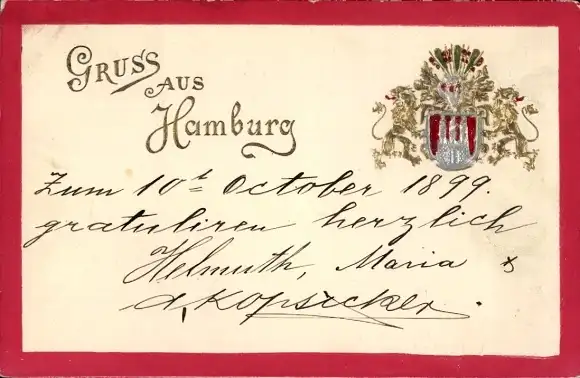 GRUSS
AUS
Hamburg
Zum 10t October 1899.
gratuliren herzlich
Helmuth, Maria &